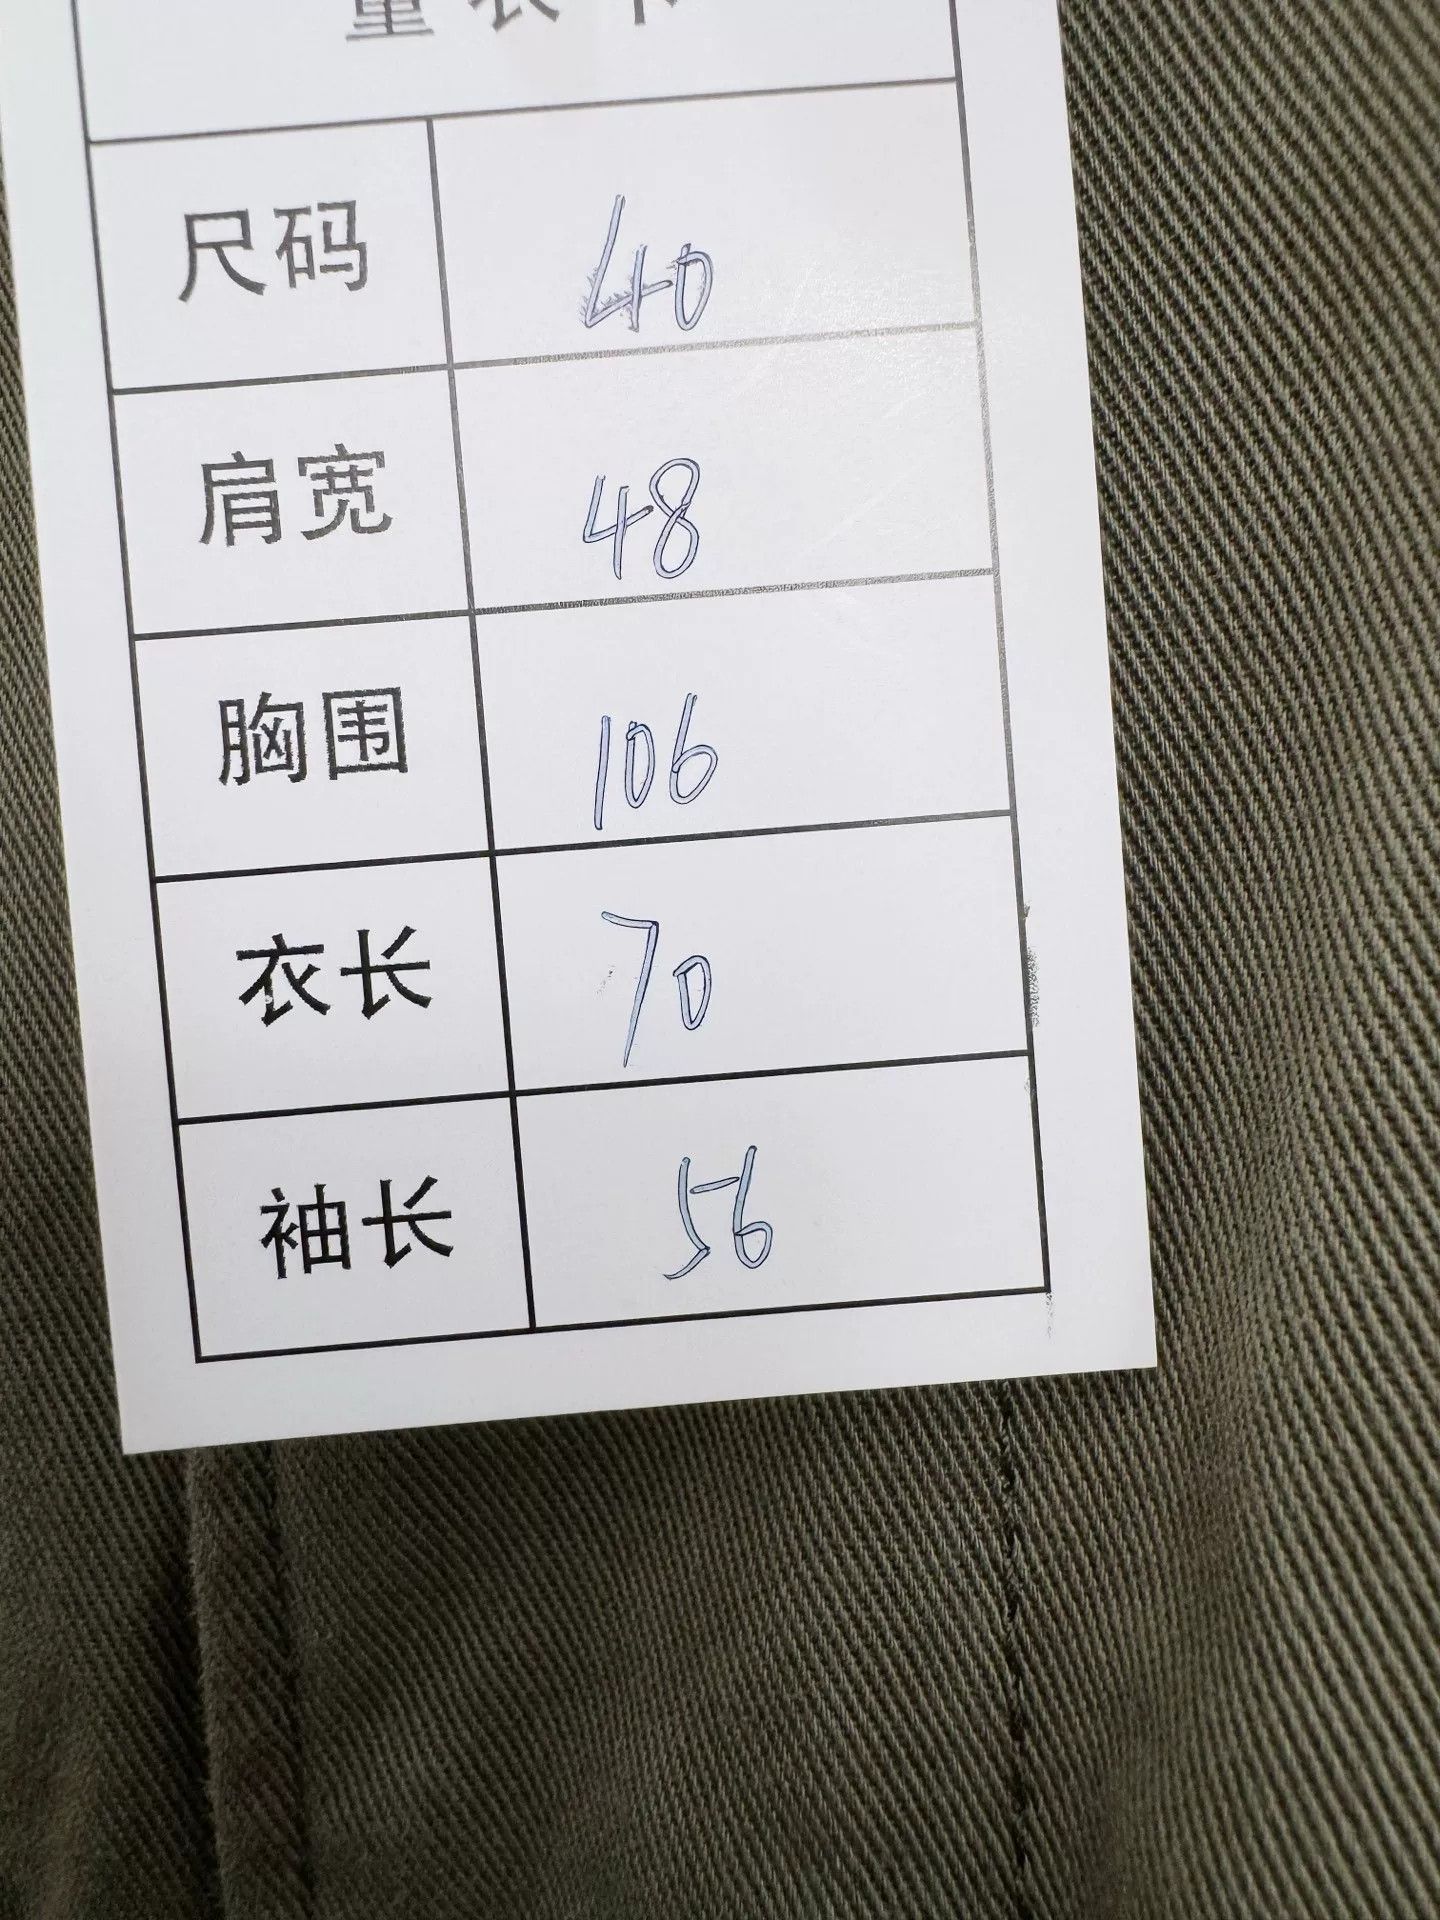 量衣卡
尺码 40
肩宽 48
胸围 106
衣长 70
袖长 56